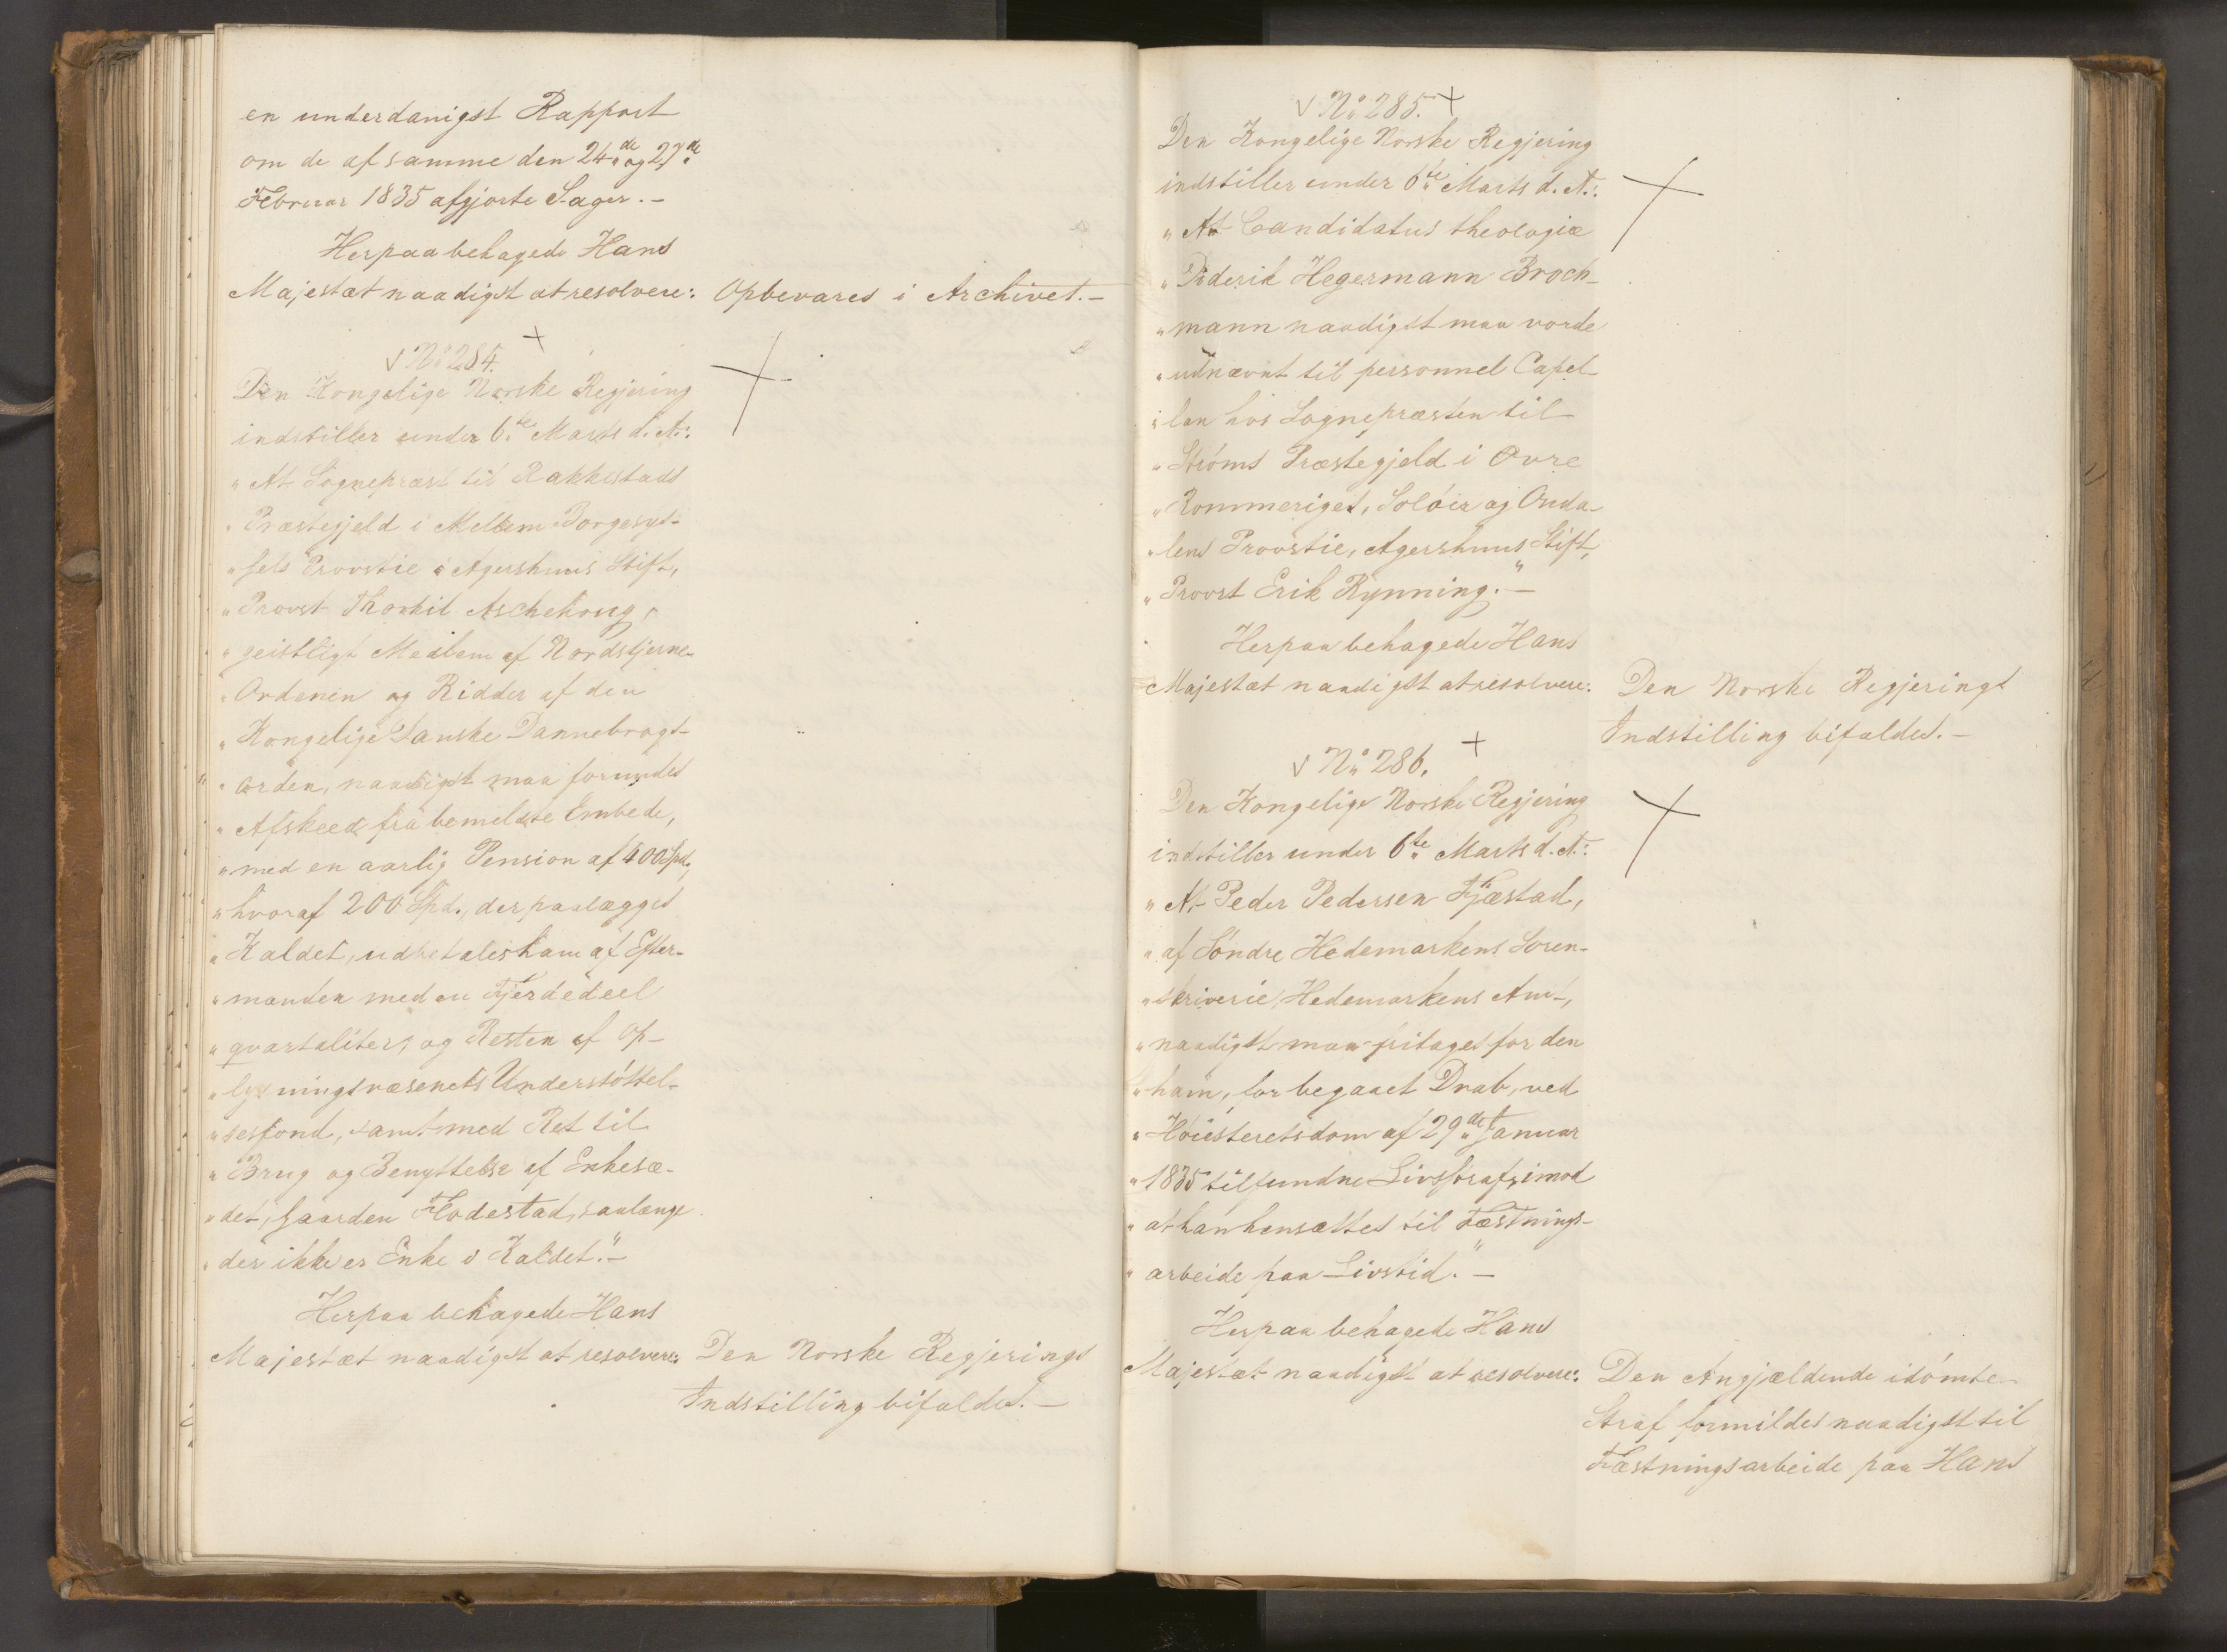 en underdanigst Rapport
om de af samme den 24de og 27de
Februar 1835 afgjorte Sager. -
Herpaa behagede Hans
Majestæt naadigst at resolvere: Opbevares i Archivet. -
No 284.
Den Kongelige Norske Regjering
indstiller under 6te Marts d. A.:
" At Sognepræst til Rakkestads
" Præstegjeld i Mellem Borgesys-
" sels Provstie i Agershuus Stift,
" Provst Thorkil Aschehoug,
" geistligt Medlem af Nordstjerne-
" Ordenen og Ridder af den
" Kongelige Danske Dannebrogs-
" orden, naadigst maa forundes
" Afskeed fra bemeldte Embede,
" med en aarlig Pension af 400 Spd.,
" hvoraf 200 Spd., der paalægges
" Kaldet, udbetales ham af Efter-
" manden med en Fjerdedeel
" qvartaliter, og Resten af Op-
" lysningsvæsenets Understøttel-
" sesfond, samt med Ret til
" Brug og Benyttelse af Enkesæ-
" det, Gaarden Flodestad, saalænge
" der ikke er Enke i Kaldet." -
Herpaa behagede Hans
Majestæt naadigst at resolvere: Den Norske Regjerings
Indstilling bifaldes. -
No 285.
Den Kongelige Norske Regjering
indstiller under 6te Marts d. A.:
" At Candidatus theologiæ
" Diderik Hegermann Broch-
" mann naadigst maa vorde
" udnævnt til personnel Capel-
" lan hos Sognepræsten til
" Strøms Præstegjeld i Øvre
" Rommeriget, Soløer og Ouda-
" lens Provstie, Agershuus Stift,
" Provst Erik Rynning." -
Herpaa behagede Hans
Majestæt naadigst at resolvere: Den Norske Regjerings
Indstilling bifaldes. -
No 286.
Den Kongelige Norske Regjering
indstiller under 6te Marts d. A.:
" At Peder Pedersen Fjæstad,
" af Søndre Hedemarkens Soren-
" skriverie, Hedemarkens Amt,
" naadigst maa fritages for den
" ham, for begaaet Drab, ved
" Høiesteretsdom af 29de Januar
" 1835 tilfundne Livsstraf, imod
" at han hensættes til Fæstnings-
" arbeide paa Livstid." -
Herpaa behagede Hans
Majestæt naadigst at resolvere: Den Angjældende idømte
Straf formildes naadigst til
Fæstningsarbeide paa Hans